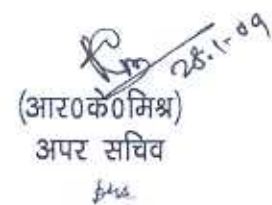 28.1-09
(आर0के0मिश्र)
अपर सचिव